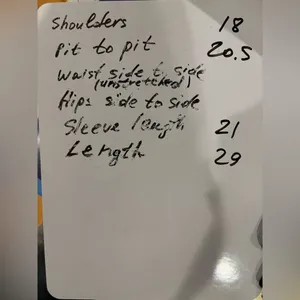 Shoulders 18
Pit to pit 20.5
waist side to side
(unstretched)
Hips side to side
Sleeve length 21
Length 29